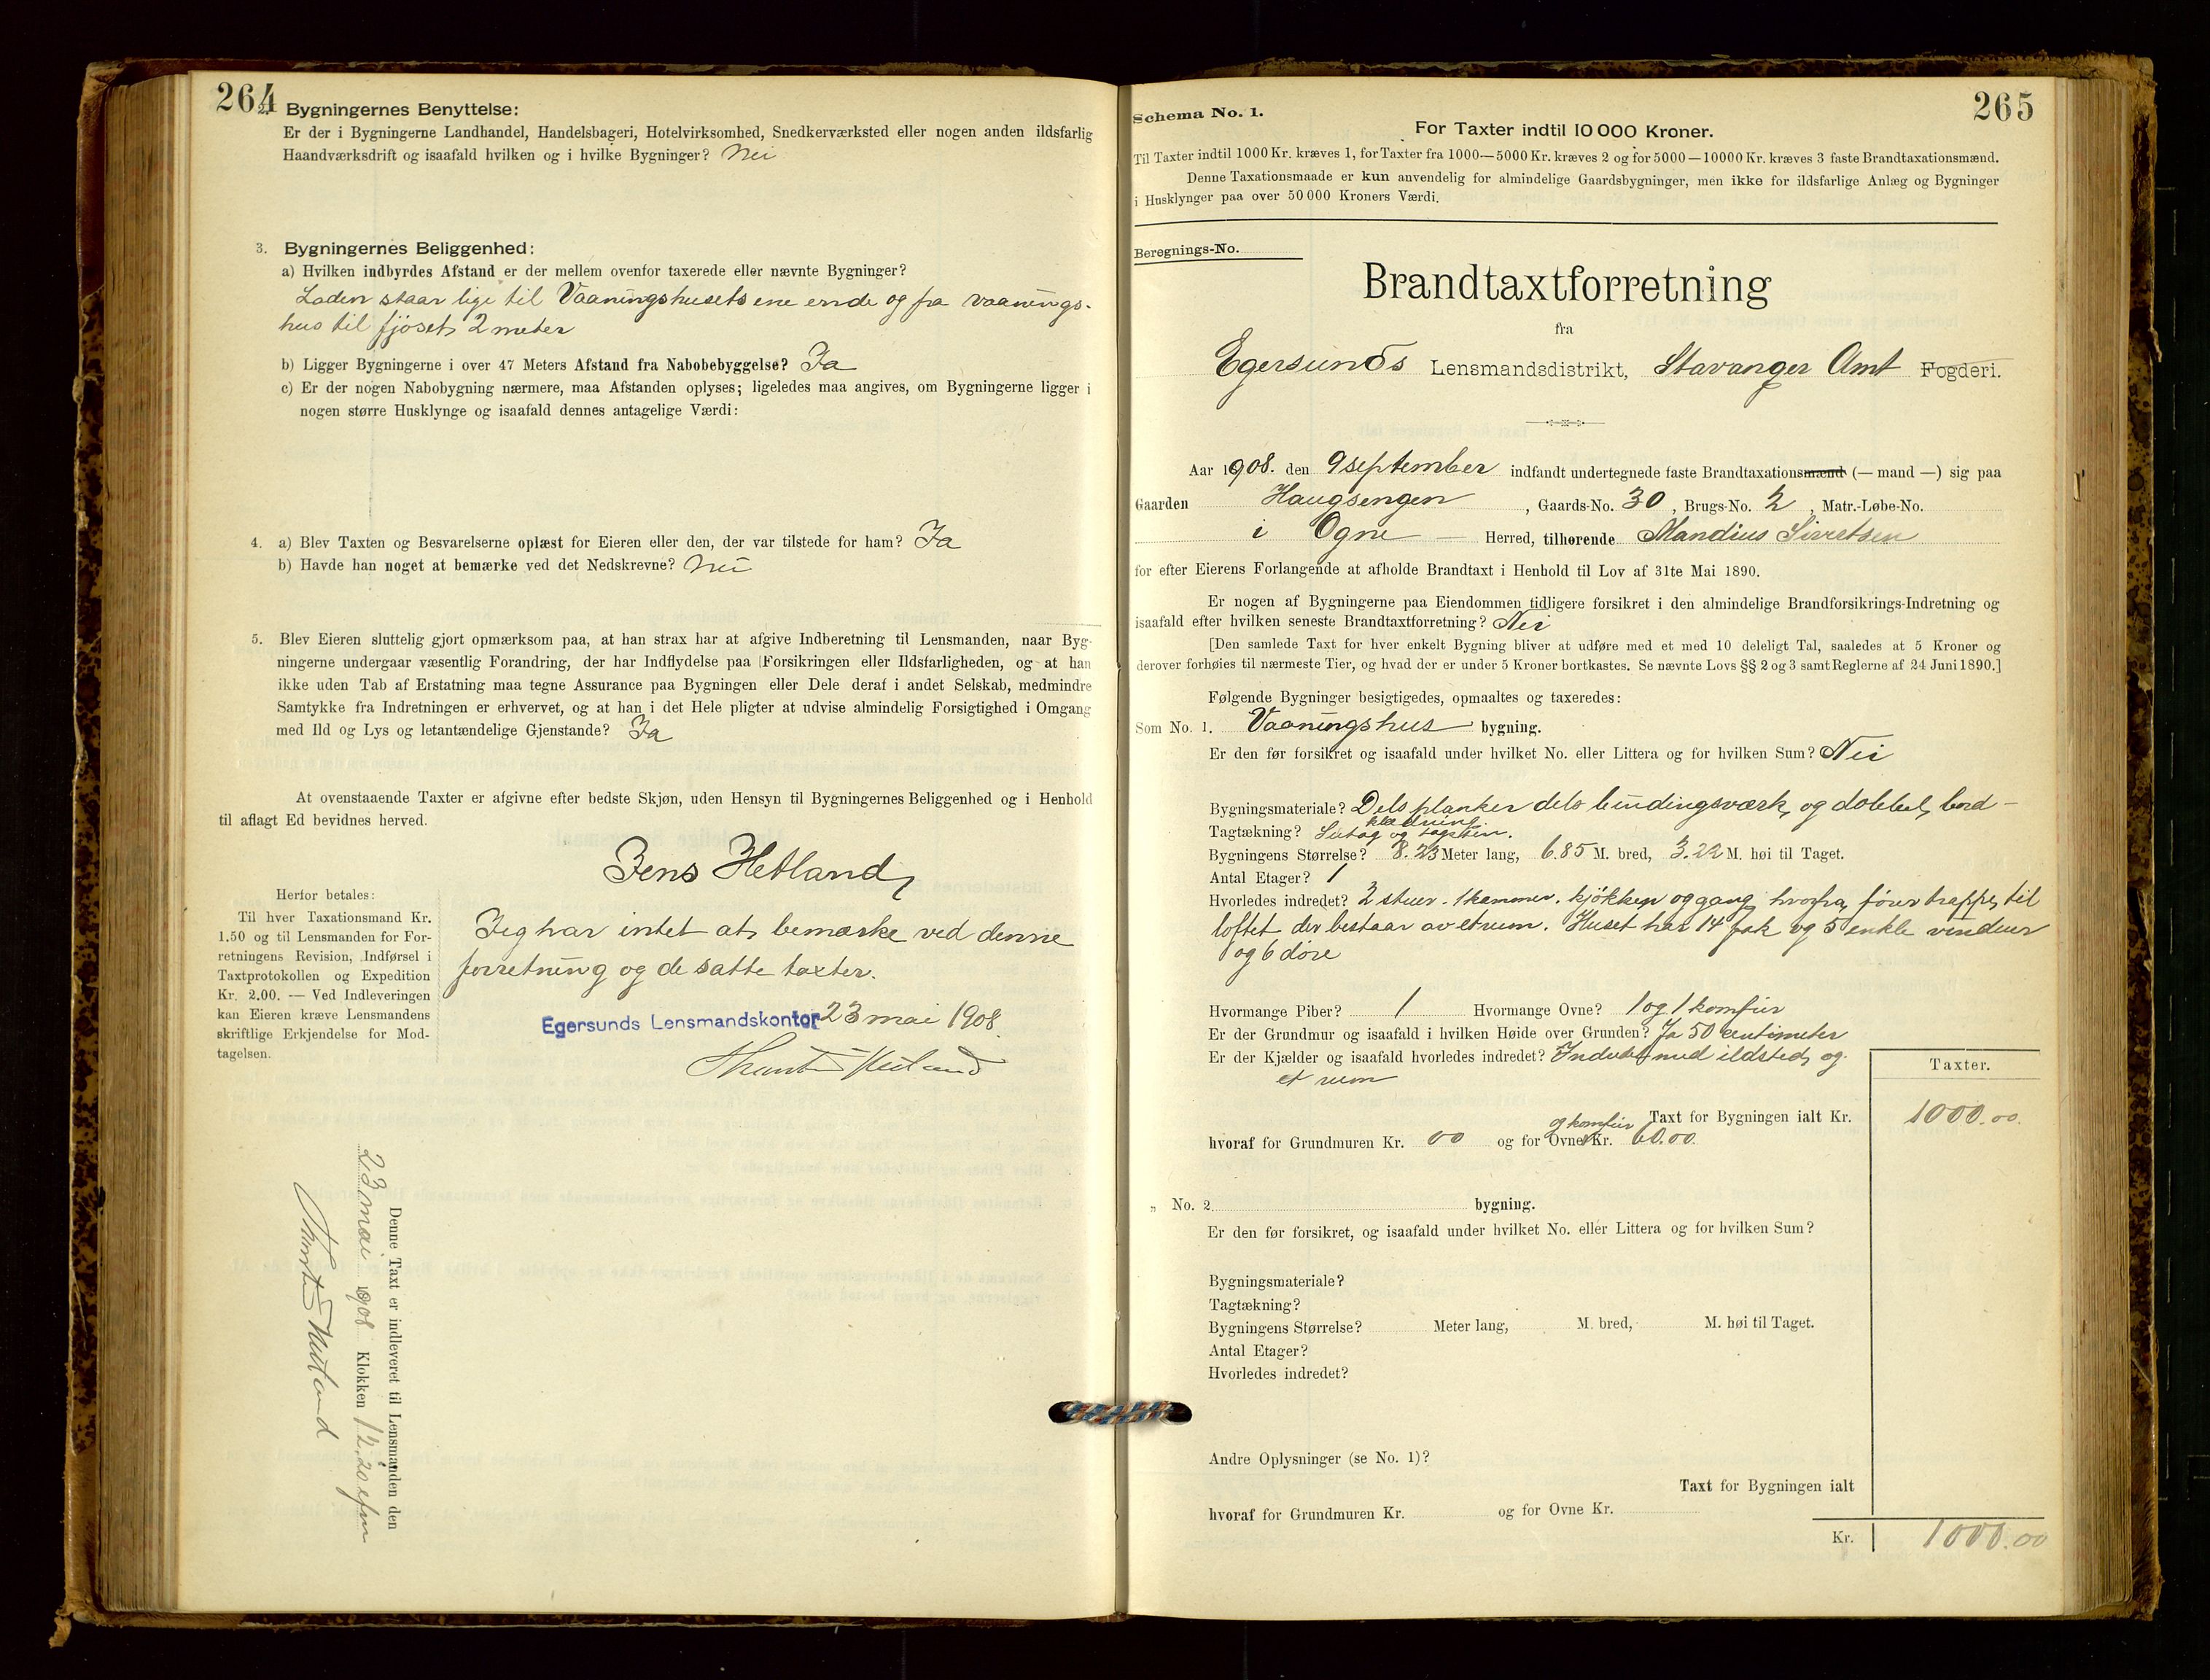 264
2. Bygningernes Benyttelse:
Er der i Bygningerne Landhandel, Handelsbageri, Hotelvirksomhed, Snedkerværksted eller nogen anden ildsfarlig
Haandværksdrift og isaafald hvilken og i hvilke Bygninger? Nei
3. Bygningernes Beliggenhed:
a) Hvilken indbyrdes Afstand er der mellem ovenfor taxerede eller nævnte Bygninger?
Laden staar lige til Vaaningshusets ene ende og fra vaanings-
hus til fjøset 2 meter
b) Ligger Bygningerne i over 47 Meters Afstand fra Nabobebyggelse? Ja
c) Er der nogen Nabobygning nærmere, maa Afstanden oplyses; ligeledes maa angives, om Bygningerne ligger i
nogen større Husklynge og isaafald dennes antagelige Værdi:
4. a) Blev Taxten og Besvarelserne oplæst for Eieren eller den, der var tilstede for ham? Ja
b) Havde han noget at bemærke ved det Nedskrevne? Nei
5. Blev Eieren sluttelig gjort opmærksom paa, at han strax har at afgive Indberetning til Lensmanden, naar Byg-
ningerne undergaar væsentlig Forandring, der har Indflydelse paa Forsikringen eller Ildsfarligheden, og at han
ikke uden Tab af Erstatning maa tegne Assurance paa Bygningen eller Dele deraf i andet Selskab, medmindre
Samtykke fra Indretningen er erhvervet, og at han i det Hele pligter at udvise almindelig Forsigtighed i Omgang
med Ild og Lys og letantændelige Gjenstande? Ja
At ovenstaaende Taxter er afgivne efter bedste Skjøn, uden Hensyn til Bygningernes Beliggenhed og i Henhold
til aflagt Ed bevidnes herved.
Jens Hetland
Herfor betales:
Til hver Taxationsmand Kr.
1.50 og til Lensmanden for For-
retningens Revision, Indførsel i
Taxtprotokollen og Expedition
Kr. 2.00. — Ved Indleveringen
kan Eieren kræve Lensmandens
skriftlige Erkjendelse for Mod-
tagelsen.
Jeg har intet at bemærke ved denne
forretning og de satte taxter.
Egersunds Lensmandskontor 23 mai 1908
Denne Taxt er indleveret til Lensmanden den
23 mai 1908 Klokken 12.20 efm
265
Schema No. 1.
For Taxter indtil 10 000 Kroner.
Til Taxter indtil 1000 Kr. kræves 1, for Taxter fra 1000—5000 Kr. kræves 2 og for 5000—10000 Kr. kræves 3 faste Brandtaxationsmænd.
Denne Taxationsmaade er kun anvendelig for almindelige Gaardsbygninger, men ikke for ildsfarlige Anlæg og Bygninger
i Husklynger paa over 50 000 Kroners Værdi.
Beregnings-No.
Brandtaxtforretning
fra
Egersunds Lensmandsdistrikt, Stavanger Amt Fogderi.
Aar 1908. den 9 september indfandt undertegnede faste Brandtaxationsmænd (— mand —) sig paa
Gaarden Haugsengen, Gaards-No. 30, Brugs-No. 2, Matr.-Løbe-No.
i Ogne — Herred, tilhørende Mandius Sivertsen
for efter Eierens Forlangende at afholde Brandtaxt i Henhold til Lov af 31te Mai 1890.
Er nogen af Bygningerne paa Eiendommen tidligere forsikret i den almindelige Brandforsikrings-Indretning og
isaafald efter hvilken seneste Brandtaxtforretning? Nei
[Den samlede Taxt for hver enkelt Bygning bliver at udføre med et med 10 deleligt Tal, saaledes at 5 Kroner og
derover forhøies til nærmeste Tier, og hvad der er under 5 Kroner bortkastes. Se nævnte Lovs §§ 2 og 3 samt Reglerne af 24 Juni 1890.]
Følgende Bygninger besigtigedes, opmaaltes og taxeredes:
Som No. 1. Vaaningshus bygning.
Er den før forsikret og isaafald under hvilket No. eller Littera og for hvilken Sum? Nei
Bygningsmateriale? Dels planker dels bindingsværk og dobbel bord-
klædning.
Tagtækning? Sutag og tagsten.
Bygningens Størrelse? 8.23 Meter lang, 6.85 M. bred, 3.22 M. høi til Taget.
Antal Etager? 1
Hvorledes indredet? 2 stuer. 1 kammer. kjøkken og gang hvorfra fører trappe til
loftet der bestaar av et rum. Huset har 14 fak og 5 enkle vinduer
og 6 døre
Hvormange Piber? 1 Hvormange Ovne? 1 og 1 komfür
Er der Grundmur og isaafald i hvilken Høide over Grunden? Ja 50 centimeter
Er der Kjælder og isaafald hvorledes indredet? Indredet med ildsted og
et rum
Taxter.
Taxt for Bygningen ialt Kr. 1000.00.
og komfür
hvoraf for Grundmuren Kr. 00 og for Ovne Kr. 60.00.
„ No. 2. bygning.
Er den før forsikret, og isaafald under hvilket No. eller Littera og for hvilken Sum?
Bygningsmateriale?
Tagtækning?
Bygningens Størrelse? Meter lang, M. bred, M. høi til Taget.
Antal Etager?
Hvorledes indredet?
Andre Oplysninger (se No. 1)?
Taxt for Bygningen ialt
hvoraf for Grundmuren Kr. og for Ovne Kr.
Kr. 1000.00